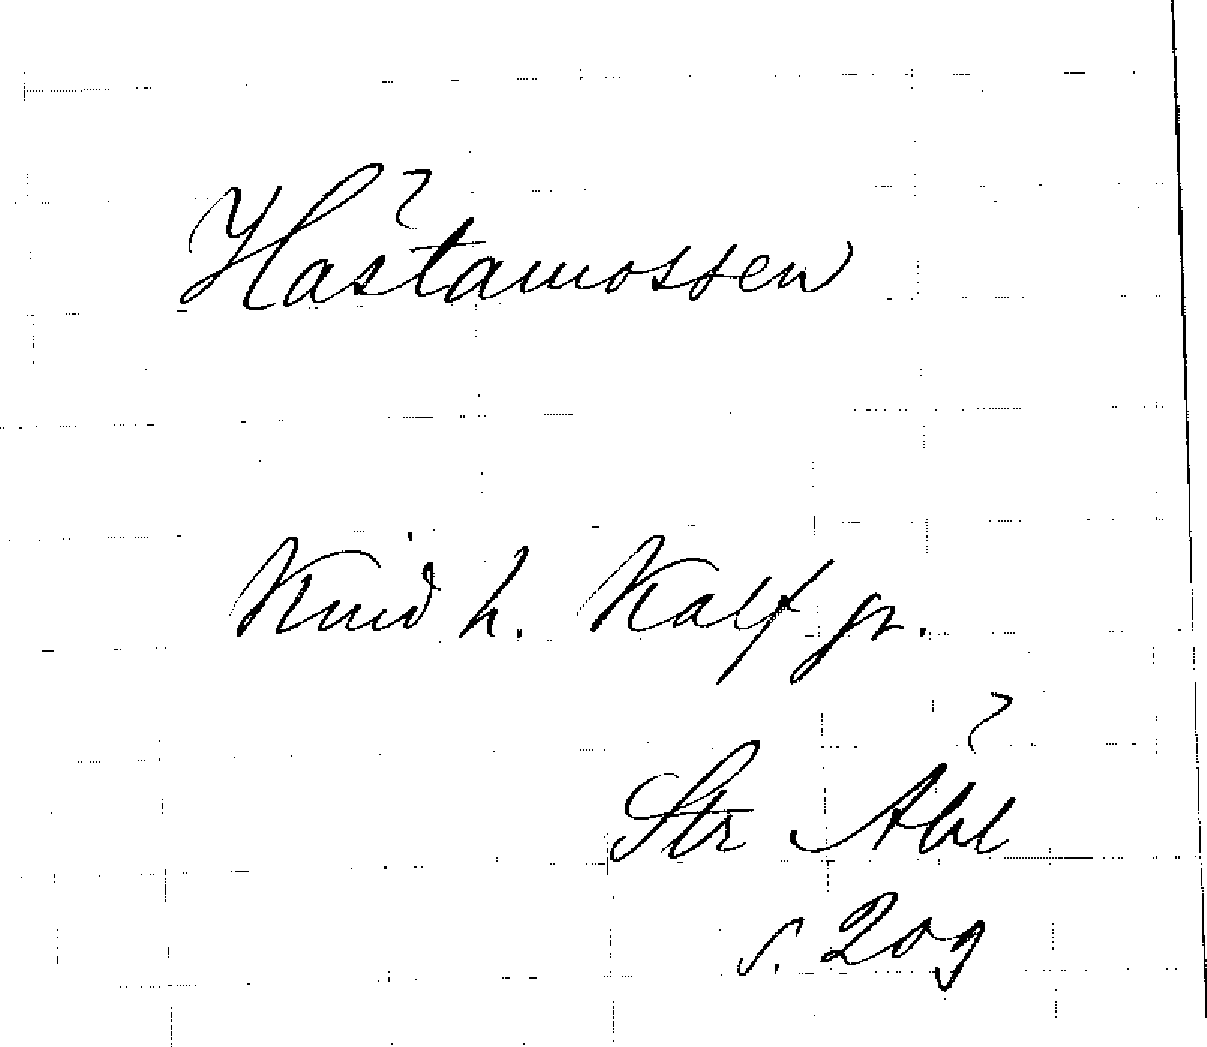 Hästamossen
Knäd h. Kalf gr.
Str Åbl
s. 209